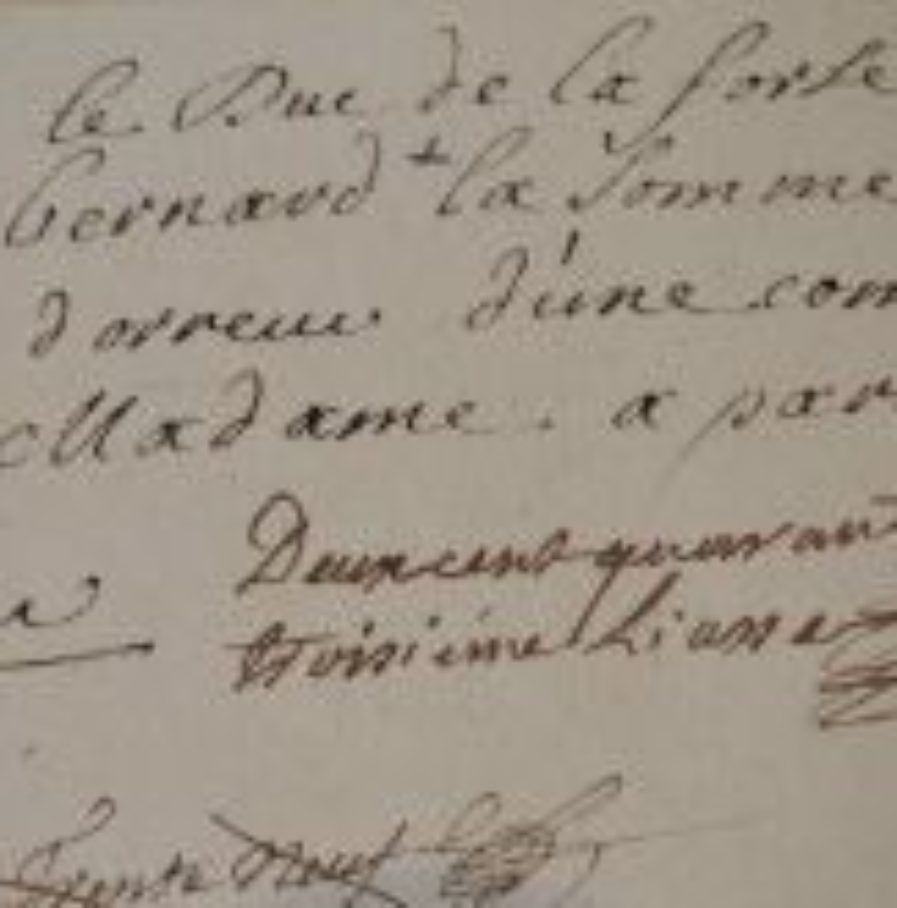 le Duc de la forse
bernard + la somme
d orreur d'une com
Madame. a par
Deuxcent quarant
troisiéme Liasse
trente Neuf